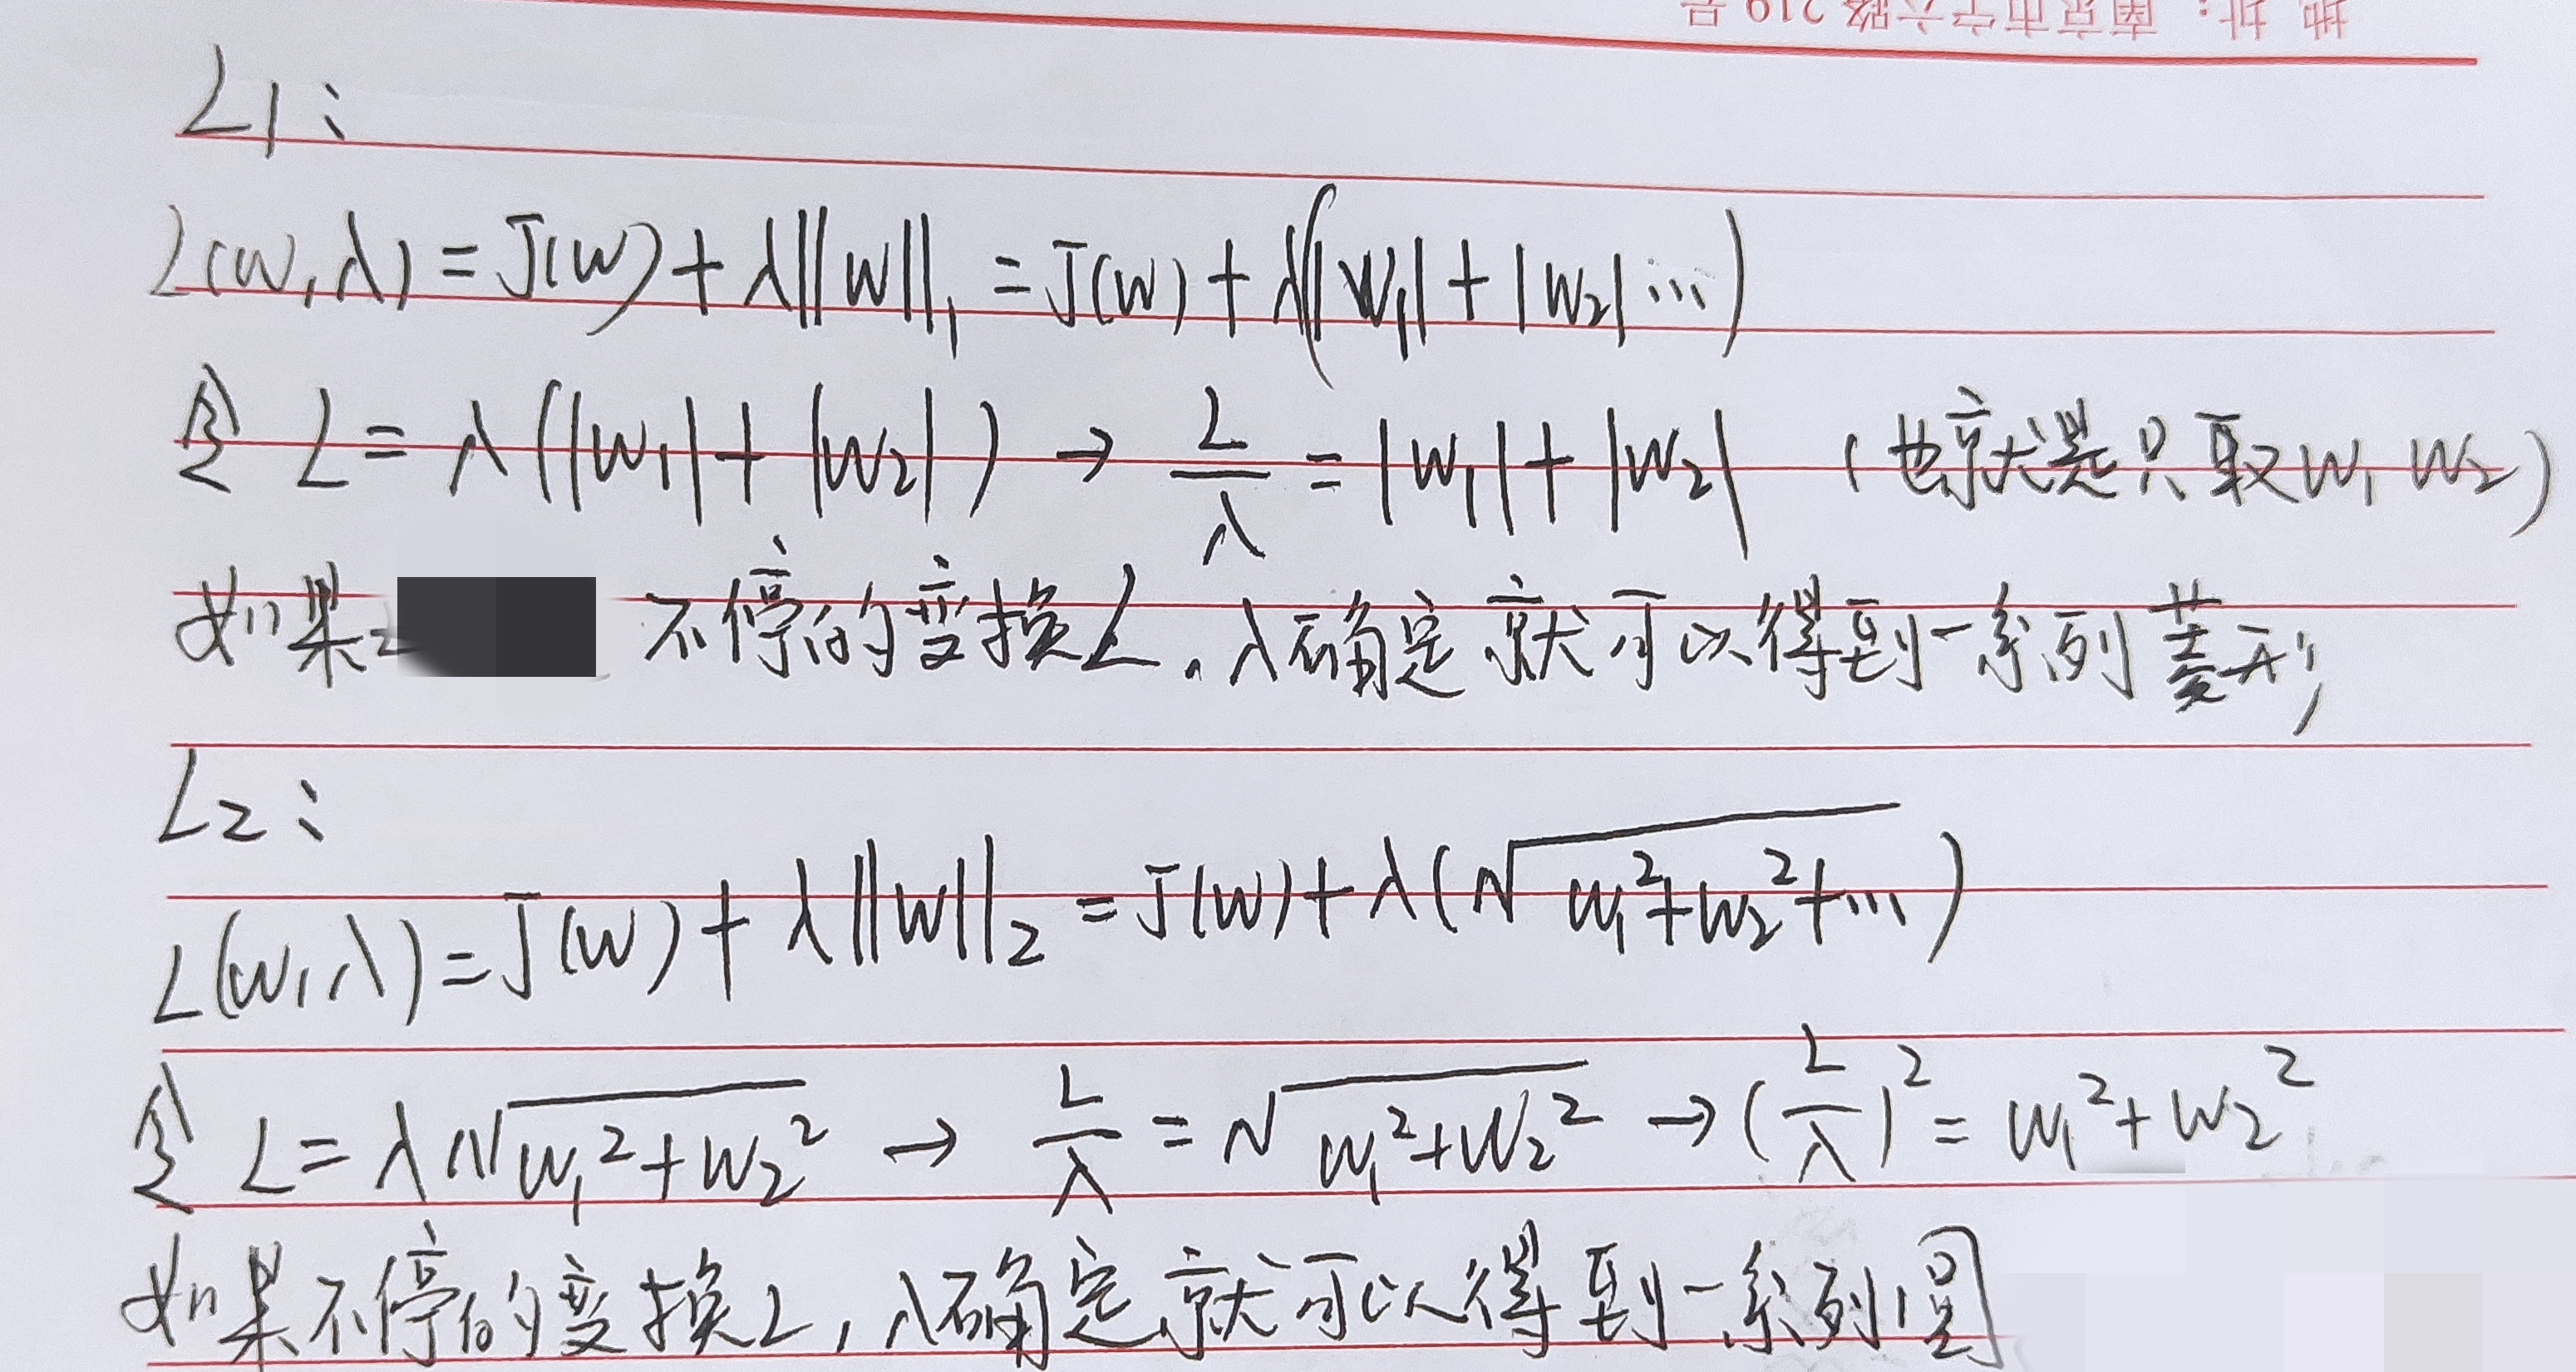 地 址：南京市宁六路 219 号
L1：
L(w,λ) = J(w) + λ||w||₁ = J(w) + λ(|w₁| + |w₂| ...)
令 L = λ(|w₁| + |w₂|) → L/λ = |w₁| + |w₂| (也就是只取w₁ w₂)
如果 不停的变换L，λ确定就可以得到一系列菱形
L2：
L(w,λ) = J(w) + λ||w||₂ = J(w) + λ(√(w₁²+w₂²+...))
令 L = λ√(w₁²+w₂²) → L/λ = √(w₁²+w₂²) → (L/λ)² = w₁²+w₂²
如果不停的变换L，λ确定就可以得到一系列圆